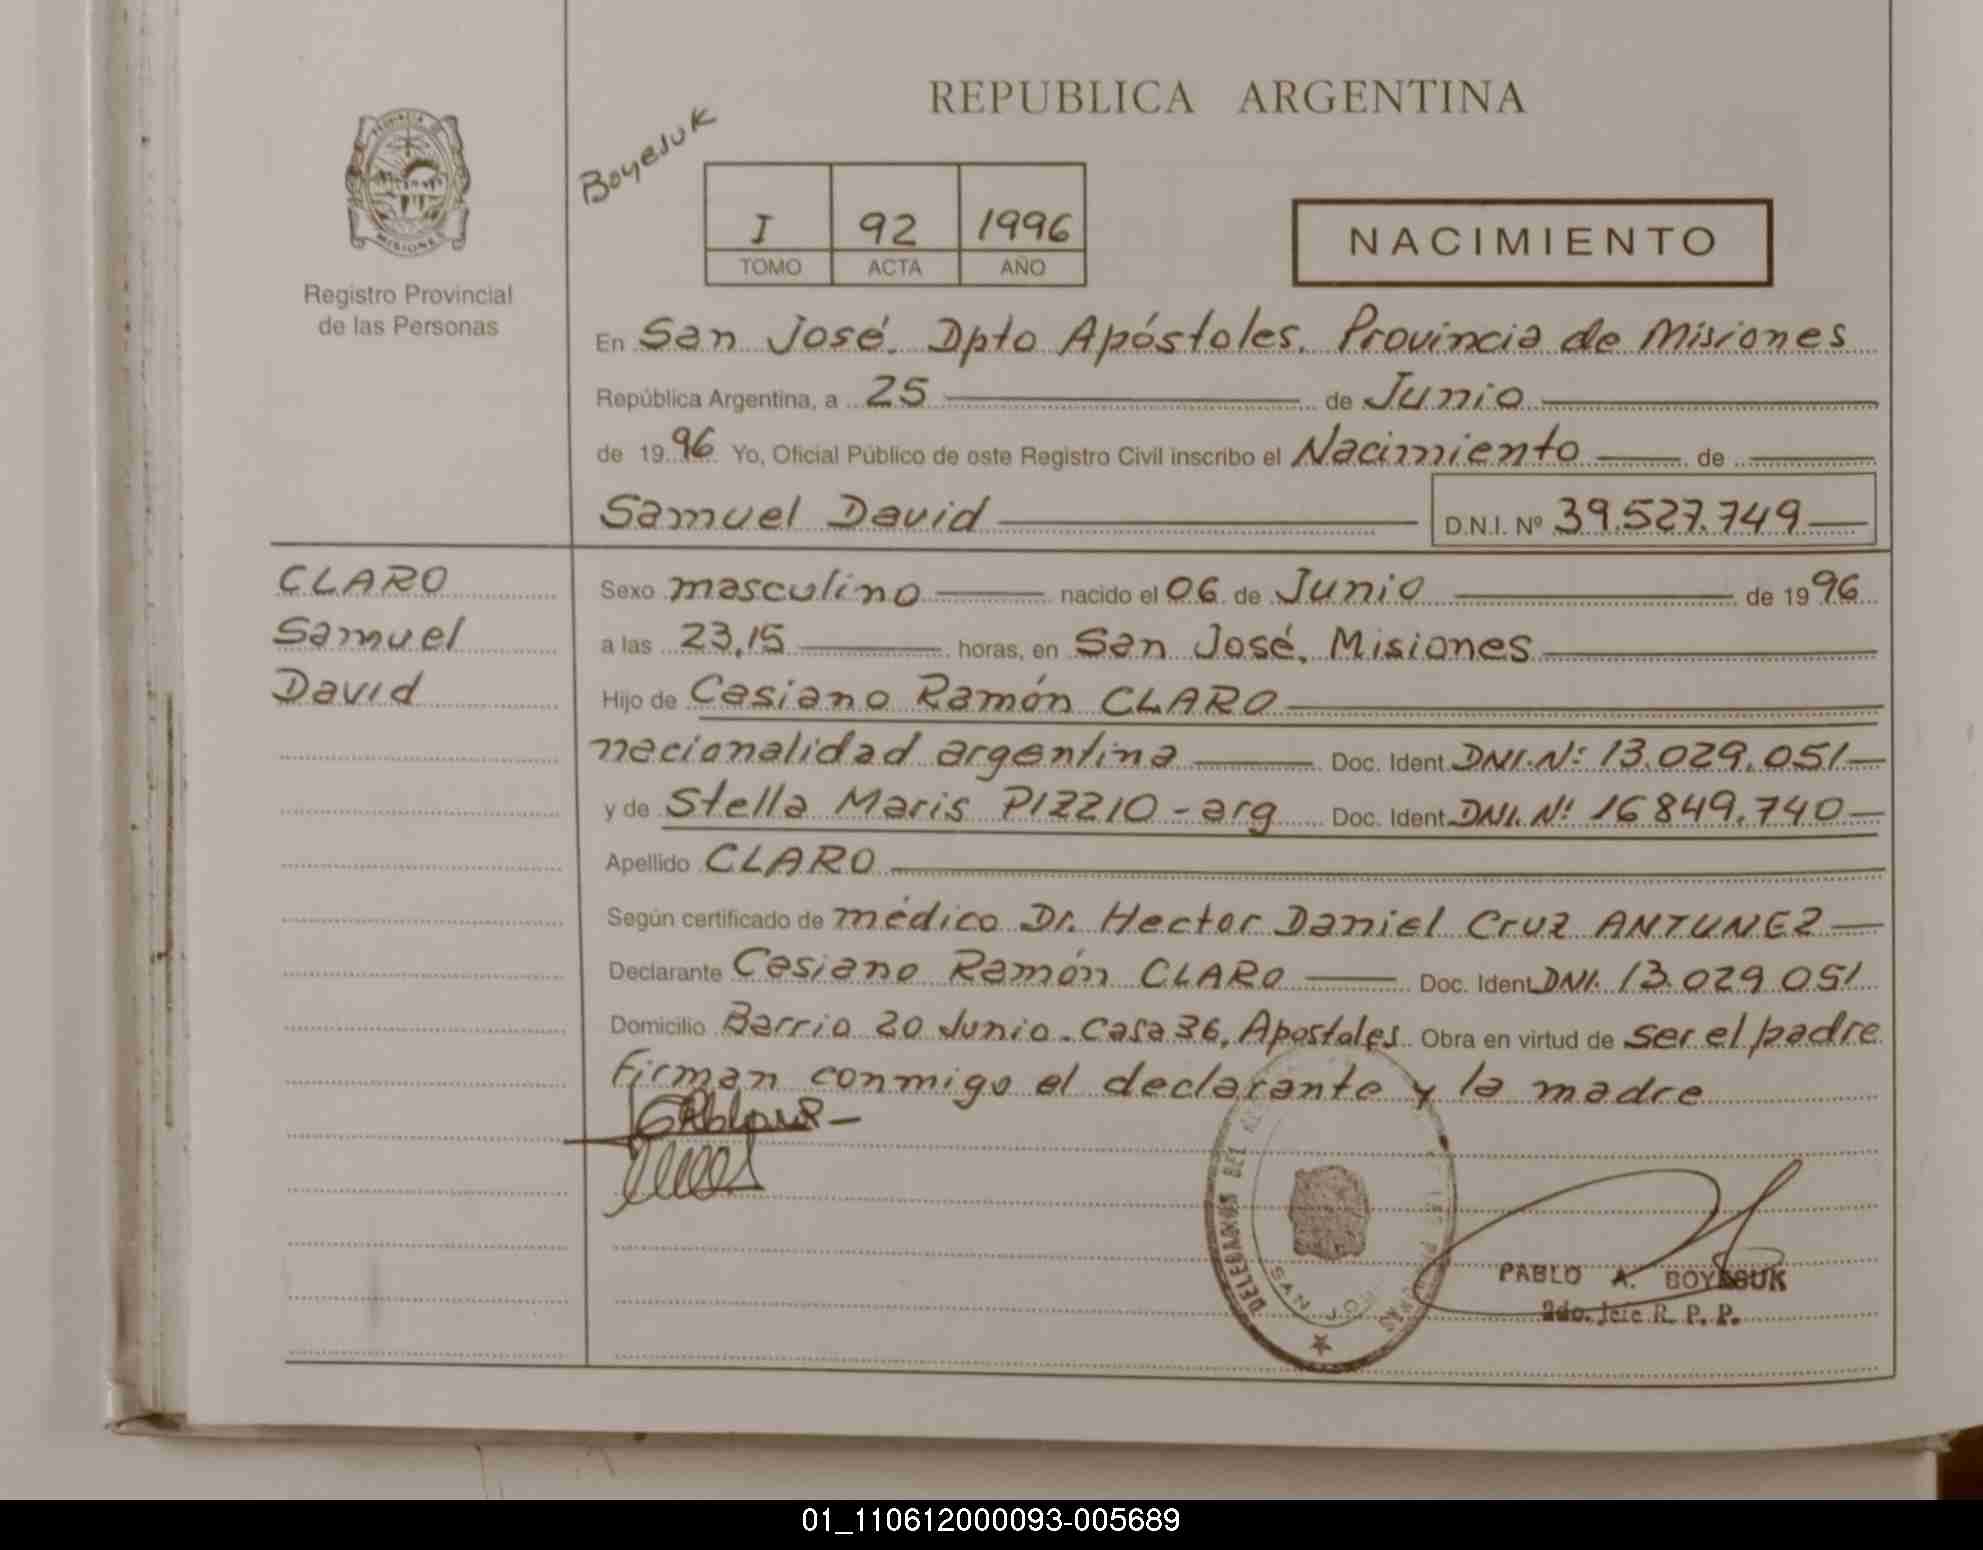 REPUBLICA ARGENTINA
PROVINCIA DE
MISIONES
Registro Provincial
de las Personas
Boyesuk
I 92 1996
TOMO ACTA AÑO
NACIMIENTO
En San José. Dpto Apóstoles. Provincia de Misiones
República Argentina, a 25 de Junio
de 1996 Yo, Oficial Público de este Registro Civil inscribo el Nacimiento de
Samuel David D.N.I. Nº 39.527.749
CLARO
Samuel
David
Sexo masculino nacido el 06 de Junio de 1996
a las 23,15 horas, en San José, Misiones
Hijo de Casiano Ramón CLARO
nacionalidad argentina Doc. Ident. DNI. Nº 13.029.051
y de Stella Maris PIZZIO - arg Doc. Ident. DNI. Nº 16849.740
Apellido CLARO
Según certificado de médico Dr. Hector Daniel Cruz ANTUNEZ
Declarante Casiano Ramón CLARO Doc. Ident. DNI. 13.029 051
Domicilio Barrio 20 Junio. Casa 36. Apostoles Obra en virtud de ser el padre
Firman conmigo el declarante y la madre
DELEGACION DEL
SAN JOSE
PABLO A. BOYESUK
2do. Jefe R. P. P.
01_110612000093-005689